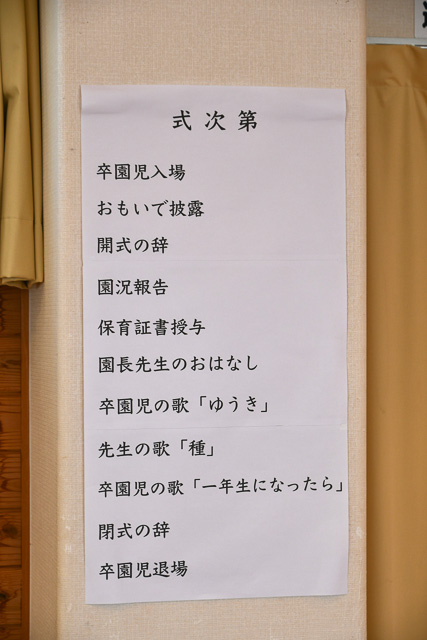 式次第
卒園児入場
おもいで披露
開式の辞
園況報告
保育証書授与
園長先生のおはなし
卒園児の歌「ゆうき」
先生の歌「種」
卒園児の歌「一年生になったら」
閉式の辞
卒園児退場